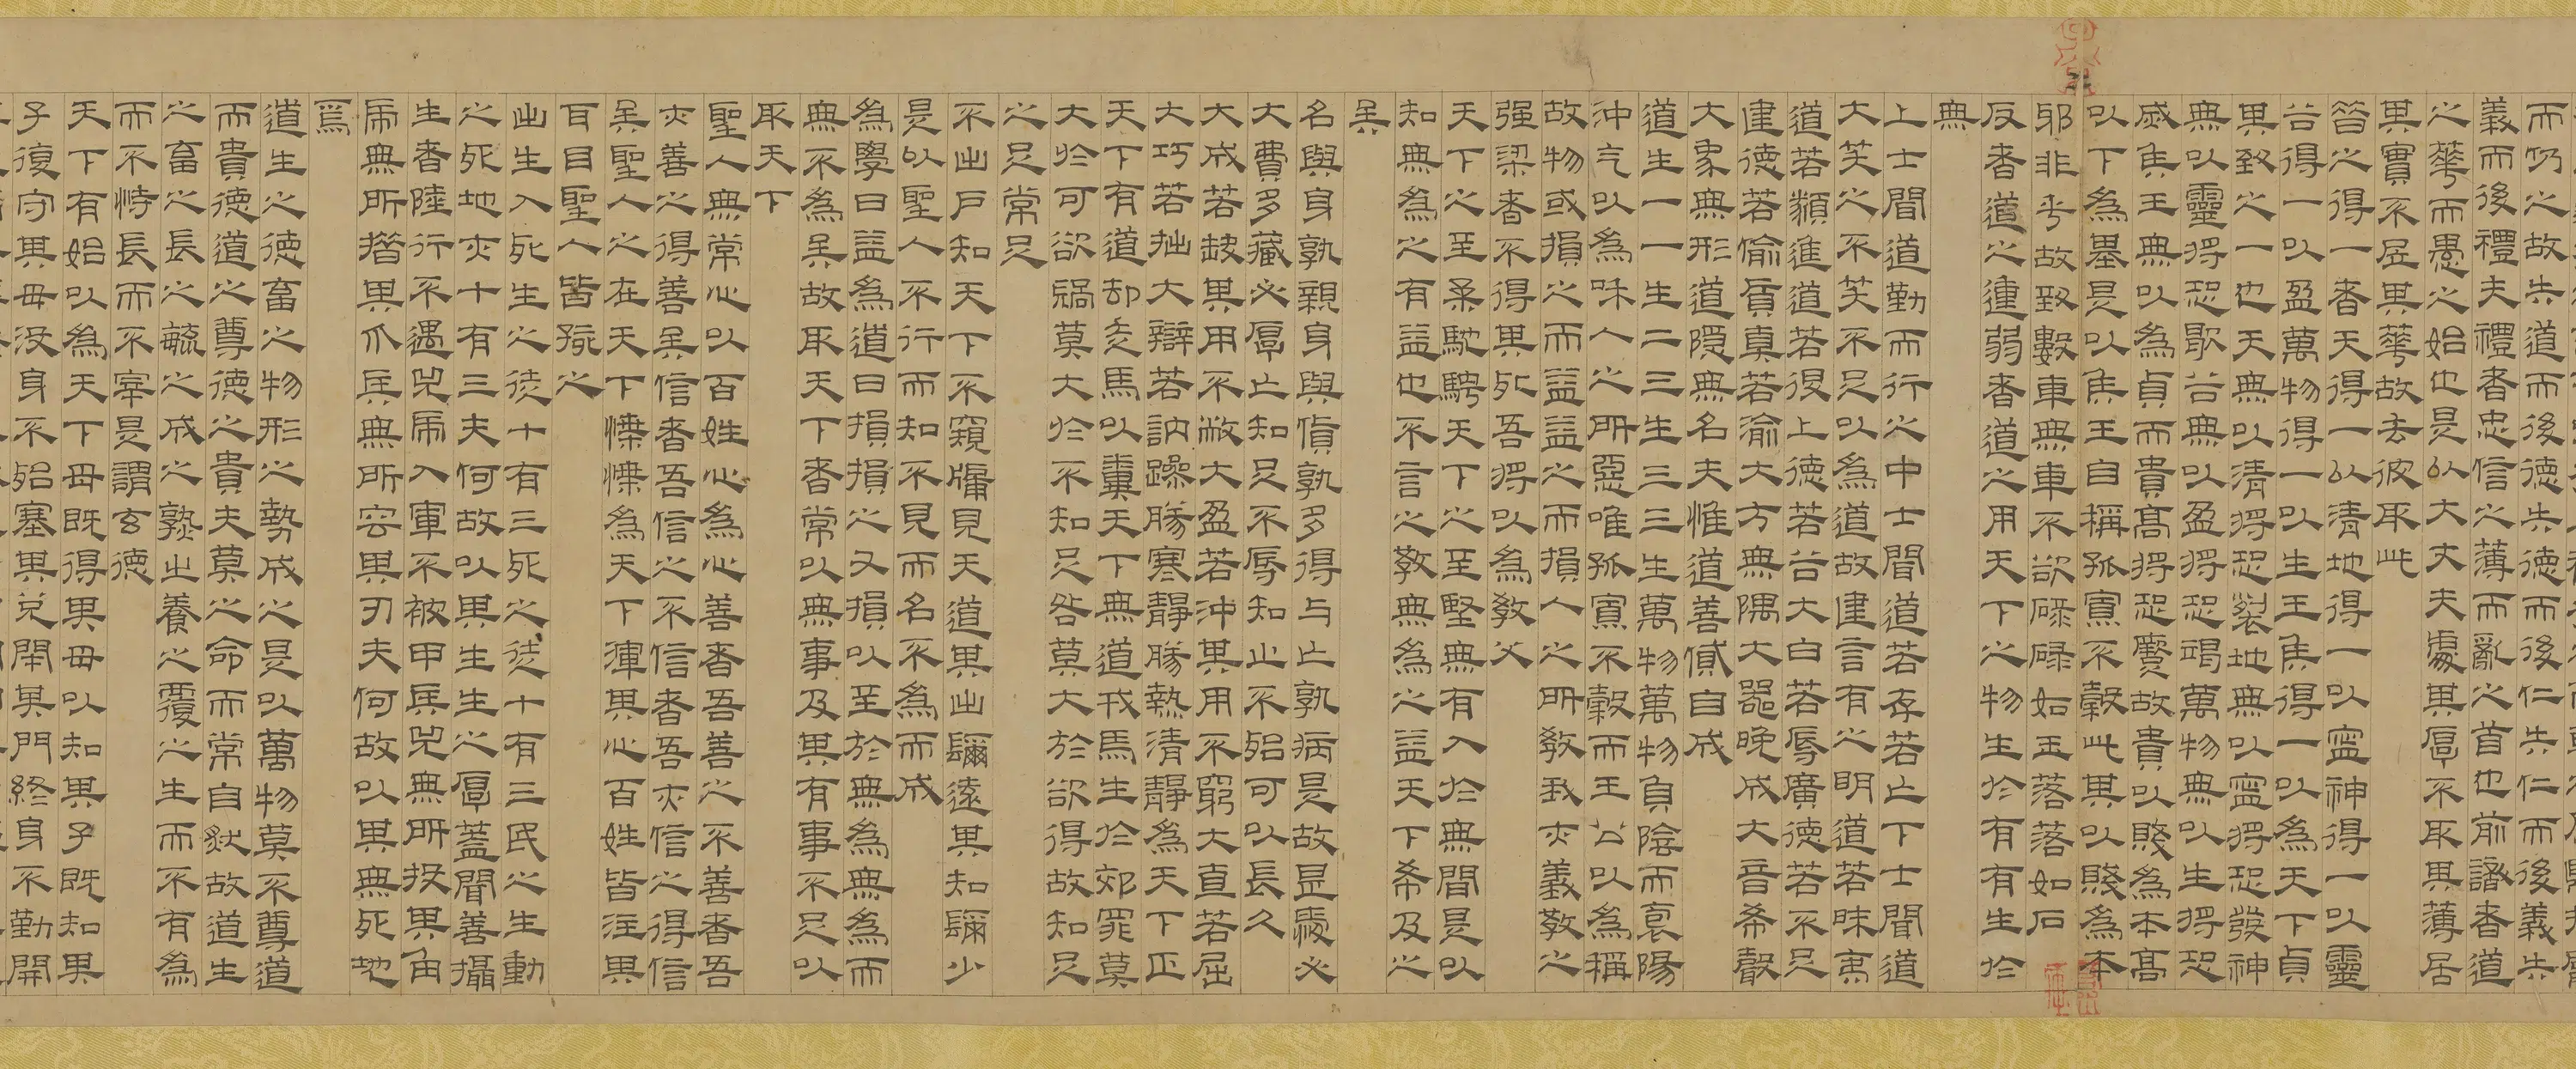 而仍之故失道而後德失德而後仁失仁而後義失
義而後禮夫禮者忠信之薄而亂之首也前識者道
之華而愚之始也是以大丈夫處其厚不取其薄居
其實不居其華故去彼取此
昔之得一者天得一以清地得一以寧神得一以靈
谷得一以盈萬物得一以生王侯得一以為天下貞
其致之一也天無以清將恐裂地無以寧將恐發神
無以靈將恐歇谷無以盈將恐竭萬物無以生將恐
滅侯王無以為貞而貴高將恐蹷故貴以賤為本高
以下為基是以侯王自稱孤寡不穀此其以賤為本
邪非乎故致數車無車不欲碌碌如玉落落如石
反者道之動弱者道之用天下之物生於有有生於
無
上士聞道勤而行之中士聞道若存若亡下士聞道
大笑之不笑不足以為道故建言有之明道若昧夷
道若纇進道若退上德若谷大白若辱廣德若不足
建德若偷質真若渝大方無隅大器晚成大音希聲
大象無形道隱無名夫惟道善貸自成
道生一一生二二生三三生萬物萬物負陰而裹陽
沖气以為和人之所惡唯孤寡不穀而王公以為稱
故物或損之而益益之而損人之所教我亦義教之
强梁者不得其死吾將以為教父
天下之至柔馳騁天下之至堅無有入於無間是以
知無為之有益也不言之教無為之益天下希及之
矣
名與身孰親身與貨孰多得与亡孰病是故甚愛必
大費多藏必厚亡知足不辱知止不殆可以長久
大成若缺其用不敝大盈若沖其用不窮大直若屈
大巧若拙大辯若訥躁勝寒靜勝熱清靜為天下正
天下有道却走馬以糞天下無道戎馬生於郊罪莫
大於可欲禍莫大於不知足咎莫大於欲得故知足
之足常足
不出戶知天下不窺牖見天道其出彌遠其知彌少
是以聖人不行而知不見而名不為而成
為學日益為道日損損之又損以至於無為無為而
無不為矣故取天下者常以無事及其有事不足以
取天下
聖人無常心以百姓心為心善者吾善之不善者吾
亦善之得善矣信者吾信之不信者吾亦信之得信
矣聖人之在天下惵惵為天下渾其心百姓皆注其
耳目聖人皆孩之
出生入死生之徒十有三死之徒十有三民之生動
之死地亦十有三夫何故以其生生之厚蓋聞善攝
生者陸行不遇兕虎入軍不被甲兵兕無所投其角
虎無所措其爪兵無所容其刃夫何故以其無死地
焉
道生之德畜之物形之勢成之是以萬物莫不尊道
而貴德道之尊德之貴夫莫之命而常自然故道生
之畜之長之毓之成之孰之養之覆之生而不有為
而不恃長而不宰是謂玄德
天下有始以為天下母既得其母以知其子既知其
子復守其母沒身不殆塞其兌閉其門終身不勤開